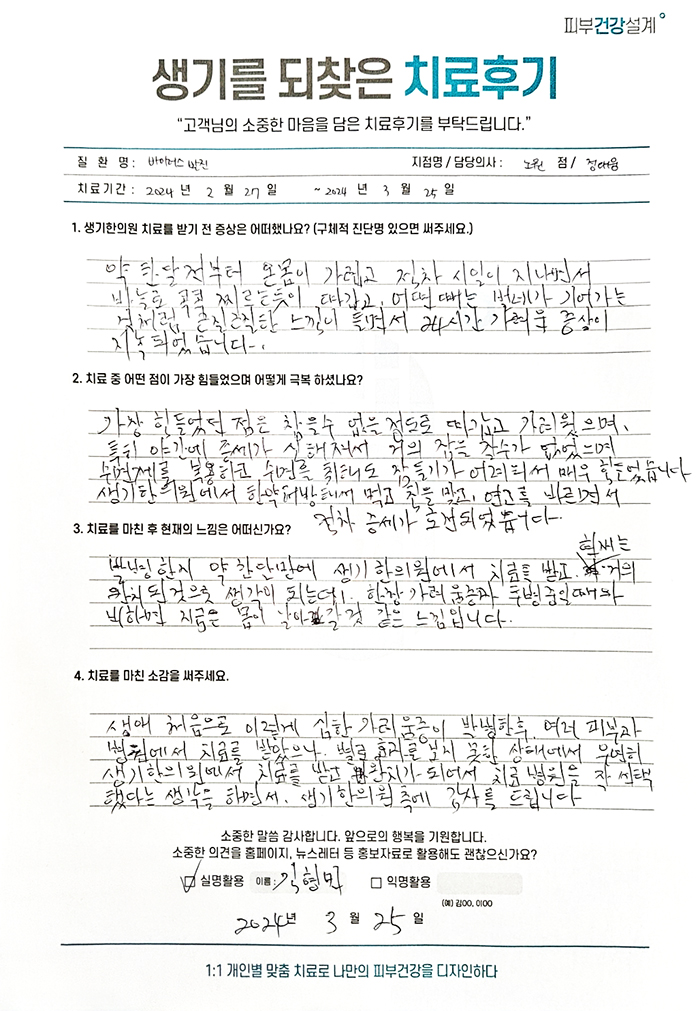 피부건강설계
생기를 되찾은 치료후기
“고객님의 소중한 마음을 담은 치료후기를 부탁드립니다.”
질 환 명 : 바이러스 발진 지점명 / 담당의사 : 노원 점 / 정대웅
치료기간 : 2024 년 2 월 27 일 ~ 2024 년 3 월 25 일
1. 생기한의원 치료를 받기 전 증상은 어떠했나요? (구체적 진단명 있으면 써주세요.)
약 한달전부터 온몸이 가렵고 점차 시일이 지나면서
바늘로 콕콕 찌르는듯이 따갑고, 어떤때는 벌레가 기어가는
것처럼 근질근질한 느낌이 들면서 24시간 가려움 증상이
지속되었습니다.
2. 치료 중 어떤 점이 가장 힘들었으며 어떻게 극복 하셨나요?
가장 힘들었던 점은 참을수 없을 정도로 따갑고 가려웠으며,
특히 야간에 증세가 심해져서 거의 잠을 잘수가 없었으며
수면제를 복용하고 수면을 취해도 잠들기가 어려워서 매우 힘들었습니다
생기한의원에서 한약처방해서 먹고 침을 맞고, 연고를 바르면서
점차 증세가 호전되었습니다.
3. 치료를 마친 후 현재의 느낌은 어떠신가요?
발병한지 약 한달만에 생기한의원에서 치료를 받고, 현재는 거의
완치된것으로 생각이 되는데, 한창 가려움증과 투병중일때와
비하면 지금은 몸이 날아갈것 같은 느낌입니다.
4. 치료를 마친 소감을 써주세요.
생애 처음으로 이렇게 심한 가려움증이 발병한후, 여러 피부과
병원에서 치료를 받았으나, 별로 효과를 보지 못한 상태에서 우연히
생기한의원에서 치료를 받고 완치가 되어서 치료병원을 잘 선택
했다는 생각을 하면서, 생기한의원측에 감사를 드립니다
소중한 말씀 감사합니다. 앞으로의 행복을 기원합니다.
소중한 의견을 홈페이지, 뉴스레터 등 홍보자료로 활용해도 괜찮으신가요?
실명활용 이름 : 김형민 익명활용
(예) 김OO, 이OO
2024년 3 월 25 일
1:1 개인별 맞춤 치료로 나만의 피부건강을 디자인하다